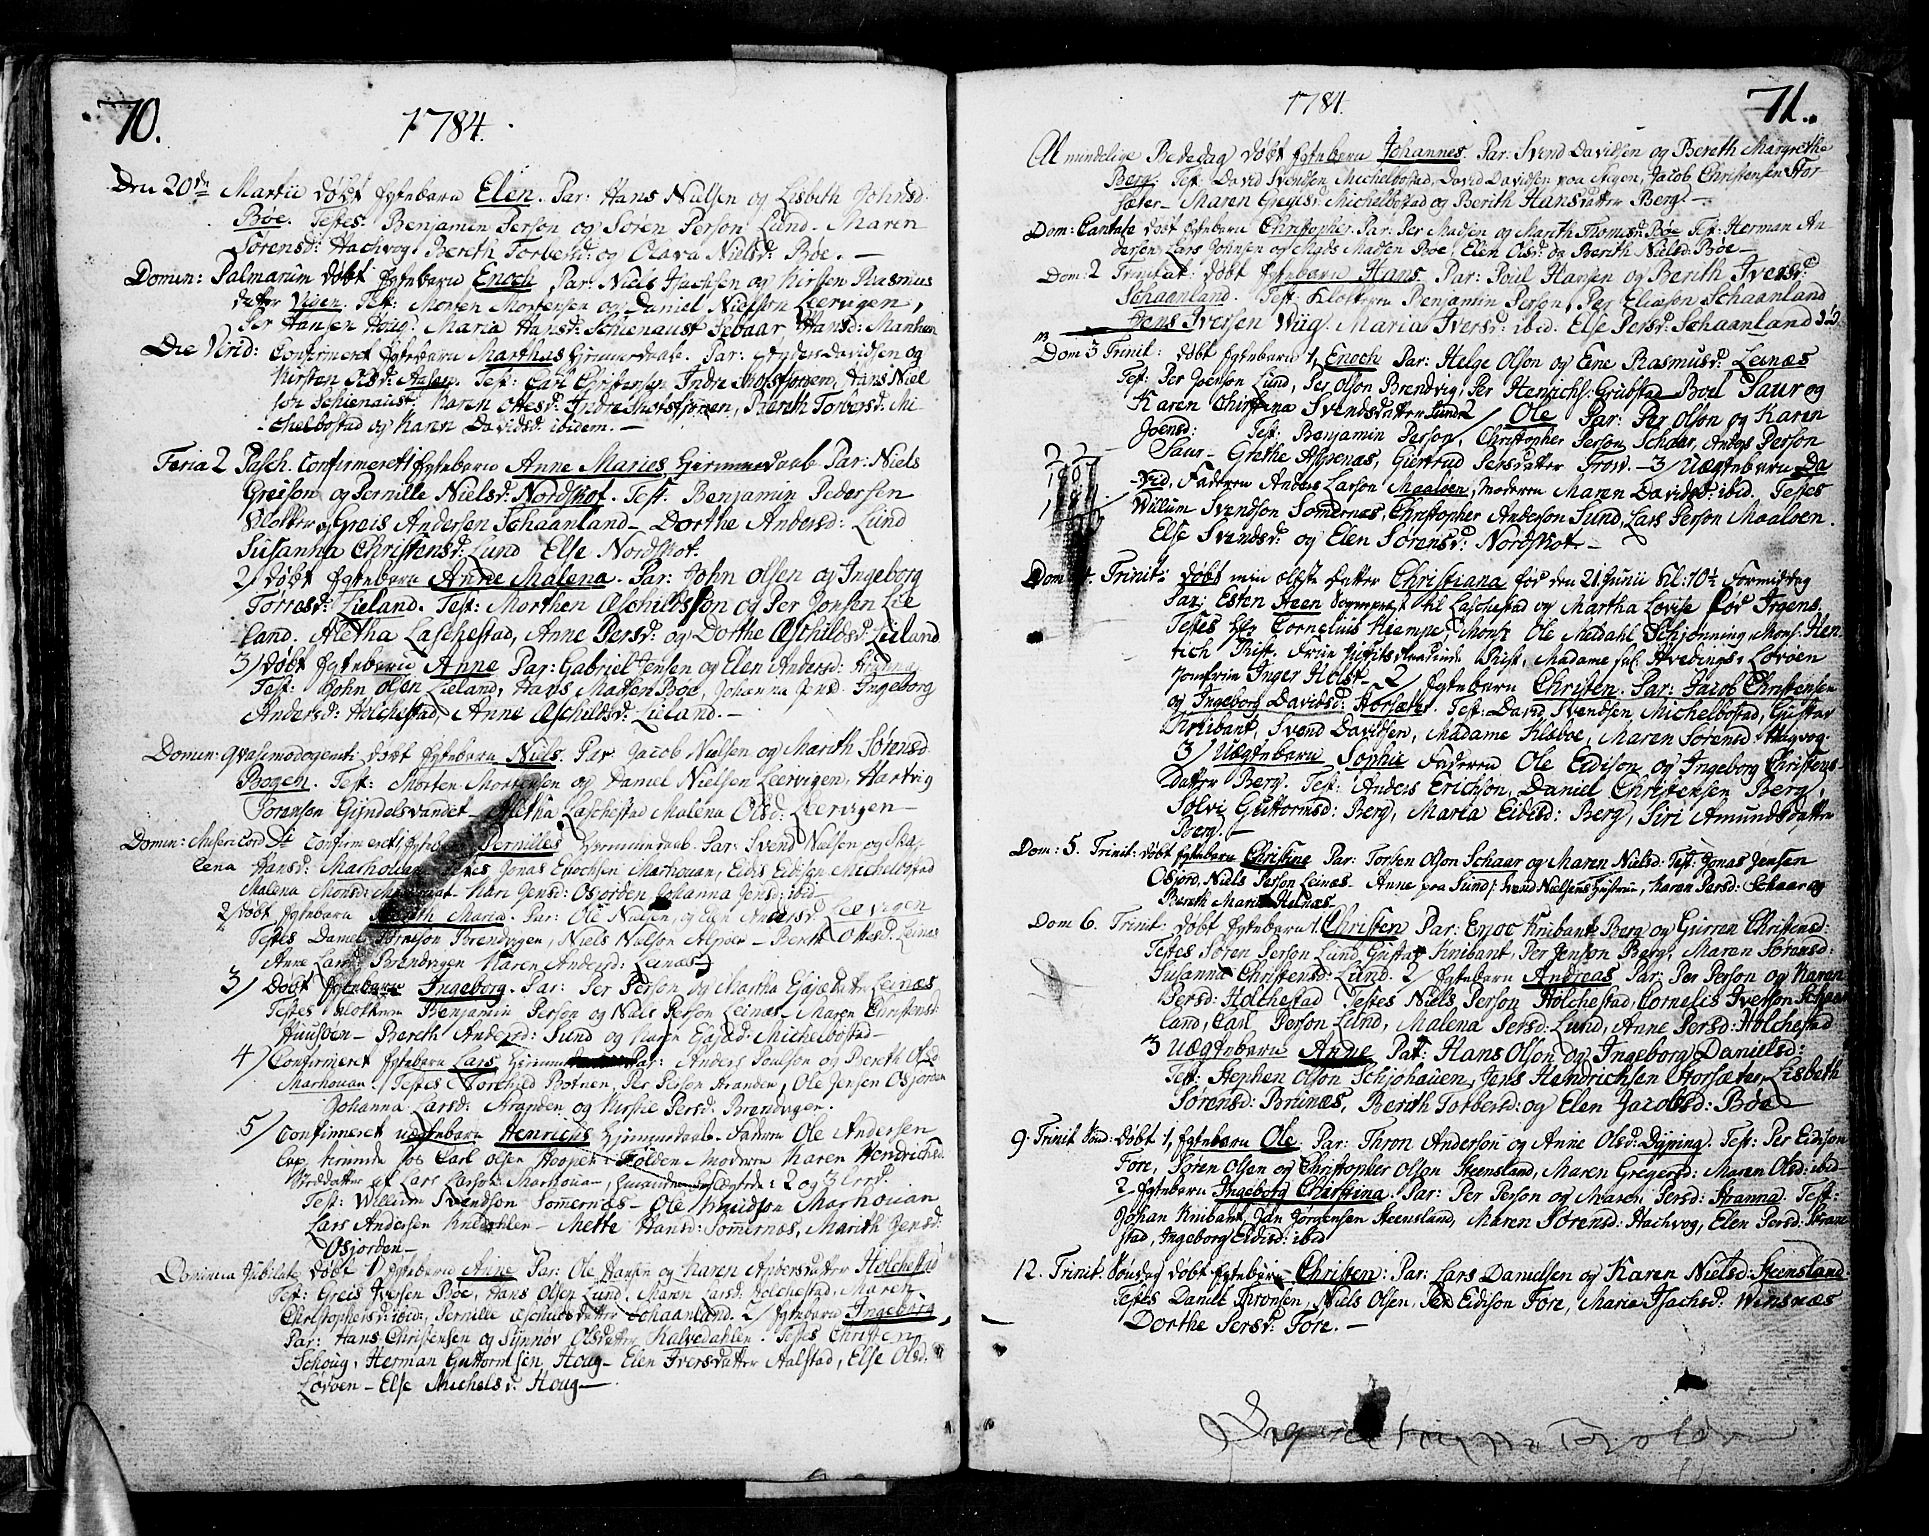 70.
1784.
Den 20de Martii døbt ægtebarn Elen. Par: Hans Nielsen og Lisbeth Johnsd:
Bøe. Testes: Benjamin Person og Søren Person Lund. Maren
Sørensd: Hachvog, Bereth Torbersd: og Olava Nielsd: Bøe. —
Domin: Palmarum døbt ægtebarn Enoch Par: Niels Isachsen og Kirsten Rasmus
datter Viien. Test: Morten Mortensen og Daniel Nielsen Leervigen,
Per Hansen Houg. Maria Hansd: Schienaust Hansd: Manhen
Die Virid: Confirmeret ægtebarn Marthas Hiemmedaab. Par: Davidsen og
Kirsten Olsd: Aasen. Test: Carl Christensen Indre Hans Niel
sen Schienaust, Karen Ottesd: Indre Bereth Torbersd: Mi
chelbostad og Karen Davidsd: ibidem. —
Feria 2 Pasch. Confirmerett ægtebarn Anne Maries Hiemmedaab Par: Niels
Greison og Pernille Nielsd: Nordskot. Test: Benjamin Pedersen
Klokker, Greis Andersen Schaanland — Dorthe Andersd: Lund
Susanna Christensd: Lund Else Nordskot.
2/ døbt ægtebarn Anne Malena. Par: John Olsen og Ingeborg
Tørresd: Lieland. Test: Morthen Aschildsson og Per Jonsen Lie
land. Aletha Laschestad, Anne Persd: og Dorthe Aschildsd: Lieland
3/ døbt ægtebarn Anne Par: Gabriel Jensen og Elen Andersd:
Test: John Olsen Lieland, Hans Matten Boe, Johanna Jensd. Ingeborg
Andersd: Holchestad, Anne Aschildsd: Lieland. —
Domin: Qvasimodogeniti døbt ægtebarn Niels Par Jacob Nielsen og Marith Sørensd
Bogen. Test: Morten Mortensen og Daniel Nielsen Leervigen, Hartvig
Sørensen Giindelsvandet — Aletha Laschestad Malena Olsd: Leervigen —
Domin: Misericord Di Confirmeret 1, Pernilles Hiemmedaab. Par: Svend Nielsen og Ma
lena Hansd: Marhouan Testes Jonas Enochsen Marhouan, Eidis Eidisen Michelbostad
Malena Monsd: Kari Jensd: Osjorden Johanna Jensd: ibid —
2/ døbt ægtebarn Marith Maria. Par: Ole Nielsen, og Elen Andersd: Leervigen
Testes Daniel Brendvigen, Niels Nielson — Bereth Ottesd: Leinæs
Anne Larsd: Brendvigen Karen Andersd: Leinæs
3/ Døbt ægtebarn Ingeborg. Par: Per Person og Martha datter Leinæs
Testes Klokkeren Benjamin Person og Niels Person Leinæs — Maren Christensd:
Huusøen — Bereth Andersd: Sund og Michelbostad —
4/ Confirmeret ægtebarn Lars Par: Anders Poulson og Berith Olsd
Marhouan. Testes Botnen, Per Person Stranden, Ole Jensen Osjorden
Johanna Larsd: Stranden og Kirstie Persd: Brendvigen.
5/ Confirmeret uægtebarn Henrichs Hiemmedaab. Faderen Ole Andersen
hos Carl Olsen i Folden. Moderen Karen Hendrichsd.
af Lars Larson Marhoua —
Test: Willum Svendson Sommernæs — Ole Knudson Marhouan
Lars Andersen — Mette Hansd: Sommernæs, Marith Jensd:
Osjorden —
Dominica Jubilate Døbt 1/ ægtebarn Anne Par: Ole Hansen og Karen Anbersdatter Holchestad
Test: Greis Iversen Bøe, Hans Olsen Lund, Maren Larsd: Holchestad, Maren
Christophersd: ibid:, Pernille Aschildsdatter Schaanland. 2/ ægtebarn Ingeborg
Par: Hans Christensen og Synnøv Olsdatter Kalvedahlen. Testes Christen
Schoug, Herman Guttormsen Houg — Elen Iversdatter Aalstad, Else Olsd:
Løvøen — Else Michelsd: Houg —
1784.
71.
Almindelige Bededag døbt ægtebarn Johannes. Par: Svend Davidsen og Bereth Margrethe
Berg. Test: David Svendsen Michelbostad, David Davidsen Aasen, Jacob Christensen Hor
sæter — Maren Michelbostad og Berith Hansdatter Berg —
Dom: Cantate døbt ægtebarn Christopher. Par: Per Madsen og Marith Thomasd: Bøe Test: Herman An
dersen, Lars Johnsen og Mads Madsen Bøe, Elen Olsd: og Berith Nielsd: Bøe —
Dom: 2 Trinitat: døbt ægtebarn Hans Par: Poul Hansen og Berith Iversd:
Schaanland. Test: Klokkeren Benjamin Person, Per Eliæson Schaanland
Jens Iversen Wiig. Maria Iversd: ibid. Else Persd: Schaanland
Dom 3 Trinit: døbt ægtebarn 1, Enoch Par: Helge Olson og Ene Rasmusd: Leinæs
Test: Per Joenson Lund, Per Olson Brendvig, Per Henrichs: Grubstad — Boel Saur og
Karen Christina Svendsdatter Lund 2/ Ole Par: Per Olson og Karin
Joensd: Test: Benjamin Person, Christopher Person Schaar, Person
Saur — Grethe Aspenæs, Giertrud Persdatter — 3/ Uægtebarn Da
vid. Faderen Anders Larson Maaløen, Moderen Maren Davidsd: ibid. Testes
Willum Svendson Somernæs, Christopher Anderson Sund, Lars Person Maaløen.
Else Svendsd: og Elen Sørensd: Nordskot. —
Dom 4. Trinit: døbt min datter Christiana fød den 21 Junii Kl: 10½ Formiddag
Par: Esten Heen Sogneprest til Laschestad og Martha Lovise fød Irgens
Testes Hr Cornelius Kiempe, Mons: Ole Matdahl Schjønning, Mons: Hen
rich Rist. Madame Hvedings, Løvøen
Jomfrue Inger Holst — 2/ ægtebarn Christen. Par: Jacob Christensen
og Ingeborg Davidsd: Horsæter. Test: David Svendsen, Michelbostad, Gustav
Knibant, Svend Davidsen, Madame Kløboe, Maren Sørensd: Hagvog.
3/ Uægtebarn Sophie Faderen Ole Eidison og Ingeborg Christens
datter Berg. Test: Anders Erichson, Daniel Christensen Berg,
Sølvi Guttormsd: Berg, Maria Eidisd: Berg, Siri Amundsdatter
Berg. —
Dom: 5. Trinit: døbt ægtebarn Christine Par: Torsten Olson Schaar og Maren Nielsd: Test: Jonas Jensen
Osjord, Niels Person Leinæs — Anne paa Sund, Svend Nielsens Hustrue, Karen Persd: Schaar og
Bereth Maria
Dom 6. Trinit: døbt ægtebarn 1. Christen Par: Enoc Knibant Berg og Giuren Christensd:
Testes Søren Person Lund, Gustav Knibant, Per Jenson Berg, Maren Sørensd:
Susanna Christensd: Lund. 2 ægtebarn Andreas Par: Per Person og Karen
Persd: Holchestad Testes Niels Person Holchestad, Cornelis Iverson Schaan
land, Carl Person Lund, Malena Persd: Lund, Anne Persd: Holchestad
3 uægtebarn Anne Par: Hans Olson og Ingeborg Danielsd:
Test: Stephen Olson Schjohauen, Jens Hendrichsen Horsæter, Lisbeth
Sørensd: Brunæs, Berith Torbersd: og Elen Jacobsd: Bøe
9. Trinit Sønd: Døbt 1, ægtebarn Ole Par: Thron Anderson og Anne Olsd: Dyping. Test: Per Eidison
Fore, Søren Olsen og Christopher Olson Steensland, Maren Gregersd: Maren Olsd: ibid —
2 ægtebarn Ingeborg Christina. Par: Per Person og Maren Persd: Stranna. Test:
Johan Knibant, Jan Jørgensen Steensland, Maren Sørensd: Hachvog, Elen Persd:
stad, Ingeborg Eidisd: ibid
12. Trinit. Søndag døbt ægtebarn Christen: Par: Lars Danielsen og Karen Nielsd: Steensland.
Testes Daniel Thronsen, Niels Olsen, Per Eidison Fore, Maria Isachsd: Winsnæs
Dorthe Persd: Fore. —